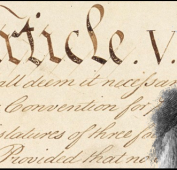 Article. V.
all deem it necessar
Convention for
slatures of three fo
Provided that no